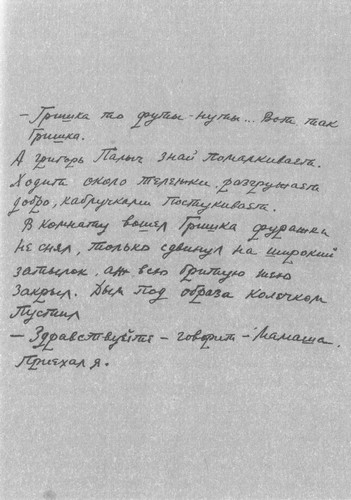 – Гришка то футы-нуты... Вот так
Гришка.
А григорь Палыч знай помалкивает.
Ходит около тележки, разгружает
добро, каблучками постукивает.
В комнату вошел Гришка фуражки
не снял, только сдвинул на широкий
затылок, аж всю бритую шею
закрыл. Дым под образа колечком
пустил
– Здравствуйте – говорит – Мамаша.
Приехал я.